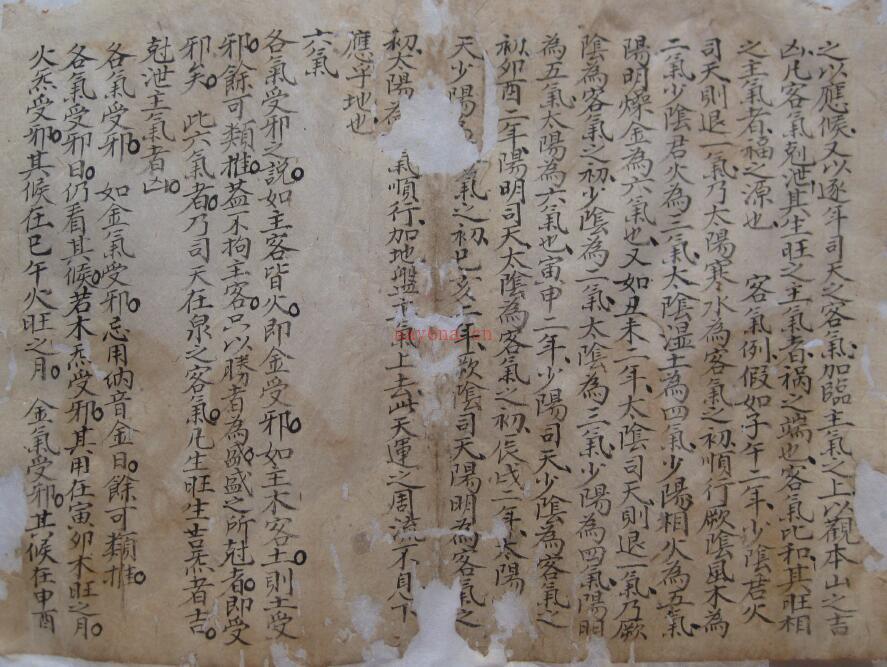 之以應候又以逐年司天之客氣加臨主氣之上以觀本山之吉
凶凡客氣尅泄其生旺之主氣者禍之端也客氣比和其旺相
之主氣者福之源也 客氣例假如子午二年少陰君火
司天則退一氣乃太陽寒水為客氣之初順行厥陰風木為
二氣少陰君火為三氣太陰湿土為四氣少陽相火為五氣
陽明燥金為六氣也又如丑未二年太陰司天則退一氣乃厥
陰為客氣之初少陰為二氣太陰為三氣少陽為四氣陽明
為五氣太陽為六氣也寅申二年少陽司天少陰為客氣之
初卯酉二年陽明司天太陰為客氣之初辰戌二年太陽
天少陽為氣之初巳亥二年厥陰司天陽明為客氣之
初太陽為氣順行加地盤六氣上去此天運之周流不息下
應乎地也
六氣
各氣受邪之説如主客皆火即金受邪如主木客土則土受
邪餘可類推葢不拘主客只以勝者為盛盛之所尅者即受
邪矣 此六氣者乃司天在泉之客氣凡生旺生吉炁者吉
尅泄主氣者凶
各氣受邪 如金氣受邪忌用纳音金日餘可類推
各氣受邪日仍看其候若木炁受邪其用在寅卯木旺之月
火炁受邪其候在巳午火旺之月 金氣受邪其候在申酉
nayona.cn